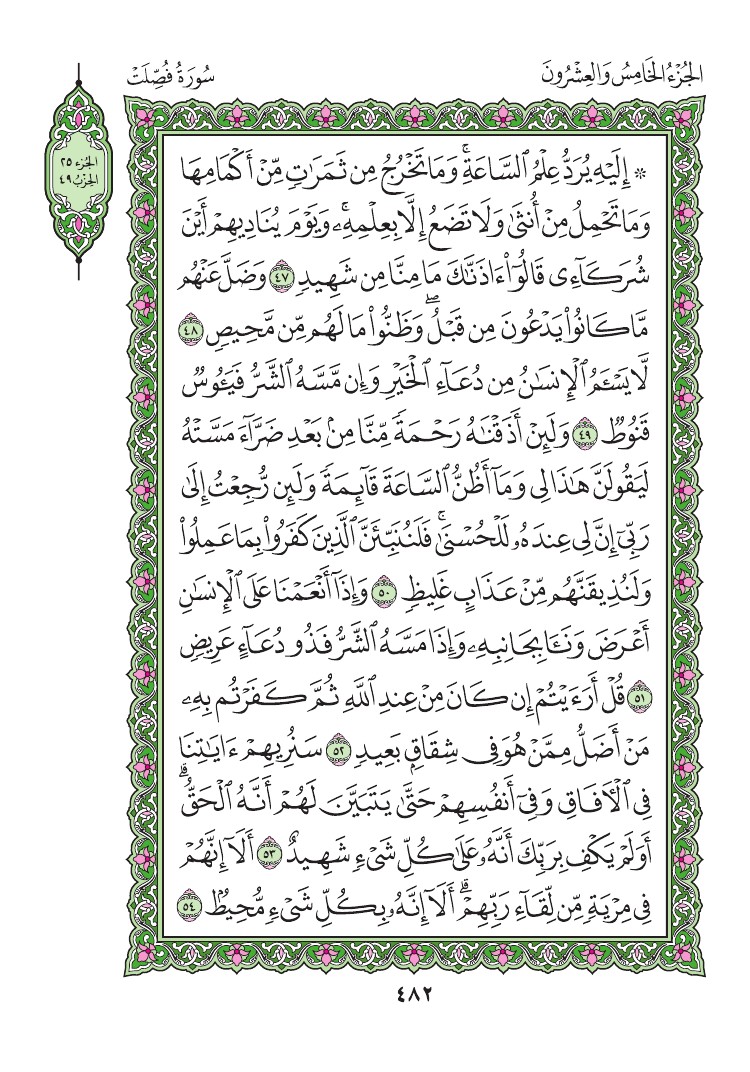 الجُزْءُ الخَامِسُ وَالعِشْرُونَ
سُورَةُ فُصِّلَتْ
الجزء ٢٥
الحزب ٤٩
* إِلَيْهِ يُرَدُّ عِلْمُ ٱلسَّاعَةِۚ وَمَا تَخْرُجُ مِن ثَمَرَٰتٍ مِّنْ أَكْمَامِهَا
وَمَا تَحْمِلُ مِنْ أُنثَىٰ وَلَا تَضَعُ إِلَّا بِعِلْمِهِۦۚ وَيَوْمَ يُنَادِيهِمْ أَيْنَ
شُرَكَآءِى قَالُوٓا۟ ءَاذَنَّٰكَ مَا مِنَّا مِن شَهِيدٍ ٤٧ وَضَلَّ عَنْهُم
مَّا كَانُوا۟ يَدْعُونَ مِن قَبْلُۖ وَظَنُّوا۟ مَا لَهُم مِّن مَّحِيصٍ ٤٨
لَّا يَسْـَٔمُ ٱلْإِنسَٰنُ مِن دُعَآءِ ٱلْخَيْرِ وَإِن مَّسَّهُ ٱلشَّرُّ فَيَـُٔوسٌ
قَنُوطٌ ٤٩ وَلَئِنْ أَذَقْنَٰهُ رَحْمَةً مِّنَّا مِنۢ بَعْدِ ضَرَّآءَ مَسَّتْهُ
لَيَقُولَنَّ هَٰذَا لِى وَمَآ أَظُنُّ ٱلسَّاعَةَ قَآئِمَةً وَلَئِن رُّجِعْتُ إِلَىٰ
رَبِّىٓ إِنَّ لِى عِندَهُۥ لَلْحُسْنَىٰۚ فَلَنُنَبِّئَنَّ ٱلَّذِينَ كَفَرُوا۟ بِمَا عَمِلُوا۟
وَلَنُذِيقَنَّهُم مِّنْ عَذَابٍ غَلِيظٍ ٥٠ وَإِذَآ أَنْعَمْنَا عَلَى ٱلْإِنسَٰنِ
أَعْرَضَ وَنَـَٔا بِجَانِبِهِۦ وَإِذَا مَسَّهُ ٱلشَّرُّ فَذُو دُعَآءٍ عَرِيضٍ
٥١ قُلْ أَرَءَيْتُمْ إِن كَانَ مِنْ عِندِ ٱللَّهِ ثُمَّ كَفَرْتُم بِهِۦ
مَنْ أَضَلُّ مِمَّنْ هُوَ فِى شِقَاقٍۭ بَعِيدٍ ٥٢ سَنُرِيهِمْ ءَايَٰتِنَا
فِى ٱلْـَٔافَاقِ وَفِىٓ أَنفُسِهِمْ حَتَّىٰ يَتَبَيَّنَ لَهُمْ أَنَّهُ ٱلْحَقُّۗ
أَوَلَمْ يَكْفِ بِرَبِّكَ أَنَّهُۥ عَلَىٰ كُلِّ شَىْءٍ شَهِيدٌ ٥٣ أَلَآ إِنَّهُمْ
فِى مِرْيَةٍ مِّن لِّقَآءِ رَبِّهِمْۗ أَلَآ إِنَّهُۥ بِكُلِّ شَىْءٍ مُّحِيطٌۢ ٥٤
٤٨٢